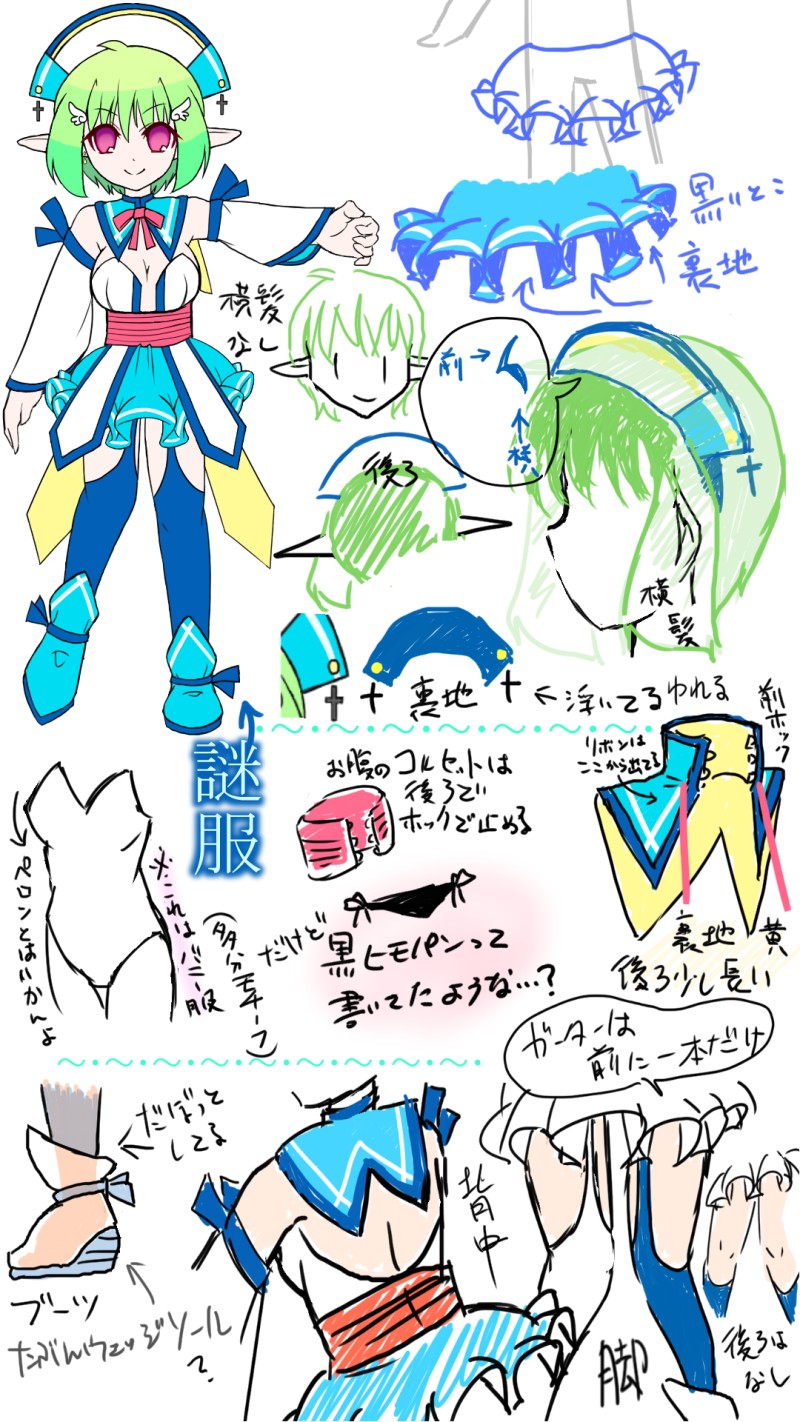 黒いとこ
裏地
横髪
なし
前→
↑横
後ろ
横
髪
裏地
←浮いてるゆれる
謎
服
お腹のコルセットは
後ろで
ホックで止める
リボンは
ここから出てる
前ホック
裏地 黄
後ろ少し長い
ペロンとはいかんよ
※これはバニー服
(多分モチーフ)
だけど
黒ヒモパンって
書いてたような…?
ガーターは
前に一本だけ
だぼっと
してる
ブーツ
たぶんウェッジソール
?
背中
脚
後ろは
なし